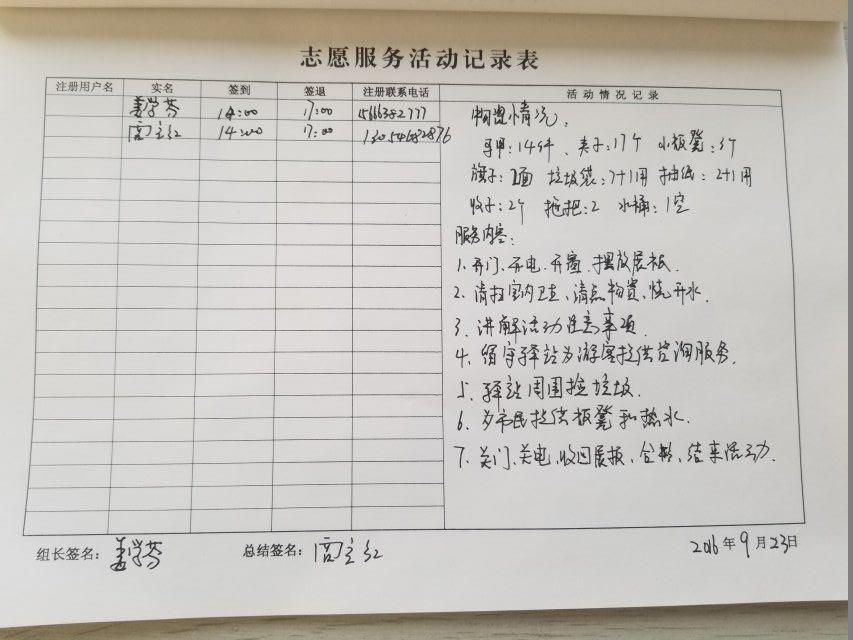 志愿服务活动记录表
注册用户名 实名 签到 签退 注册联系电话 活动情况记录
姜学芬 14:00 17:00 15666382777
14:00 17:00 13054682876
物资情况:
马甲:14件、夹子:17个 小板凳:3个
旗子:2面 垃圾袋:7+1用 抽纸:2+1用
2个 拖把:2 水桶:1空
服务内容:
1.开门、开电、开窗、摆放展板.
2.清扫室内卫生、清点物资、烧开水.
3.讲解活动注意事项.
4.留守驿站为游客提供咨询服务.
5.驿站周围捡垃圾.
6.为市民提供板凳和热水.
7.关门、关电、收回展板、合影、结束活动.
组长签名:姜学芬 总结签名:
2016年9月23日